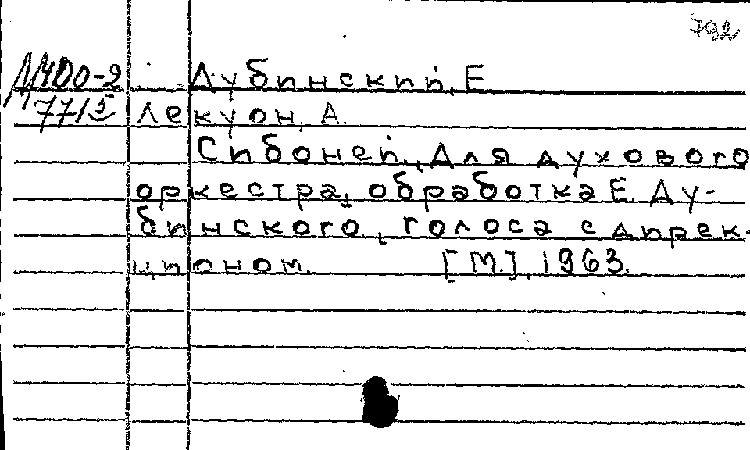 792
М400-2 Дубинский, Е
Лекуон, А.
Сибоней, Для духового
оркестра, обработка Е. Ду-
бинского, голоса с дирек-
ционом. [М.], 1963.